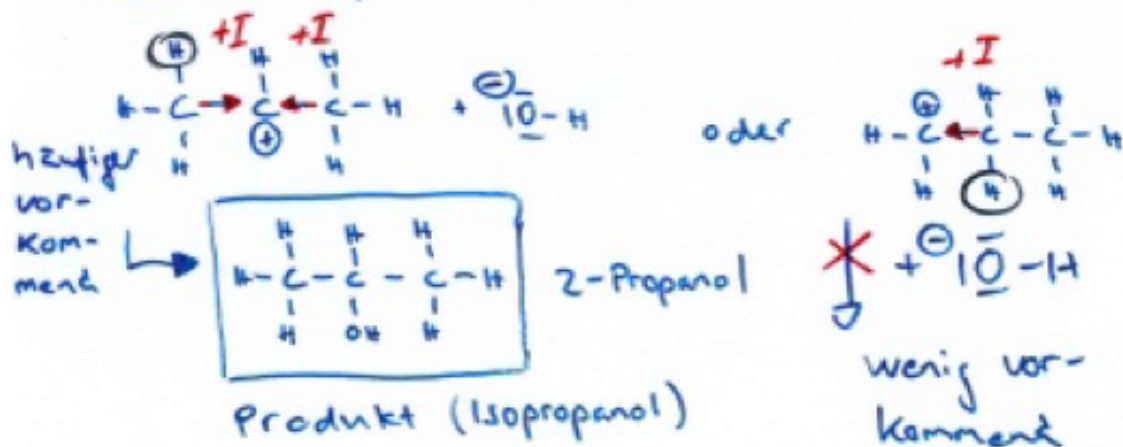 +I +I
H H H
H-C→C←C-H + ⊖|O̅-H
H ⊕ H
oder
+I
⊕ H H
H-C←C-C-H
H H H
häufiger
vor-
kom-
mend
H H H
H-C-C-C-H
H OH H
2-Propanol
+ ⊖|O̅-H
Produkt (Isopropanol)
wenig vor-
kommend